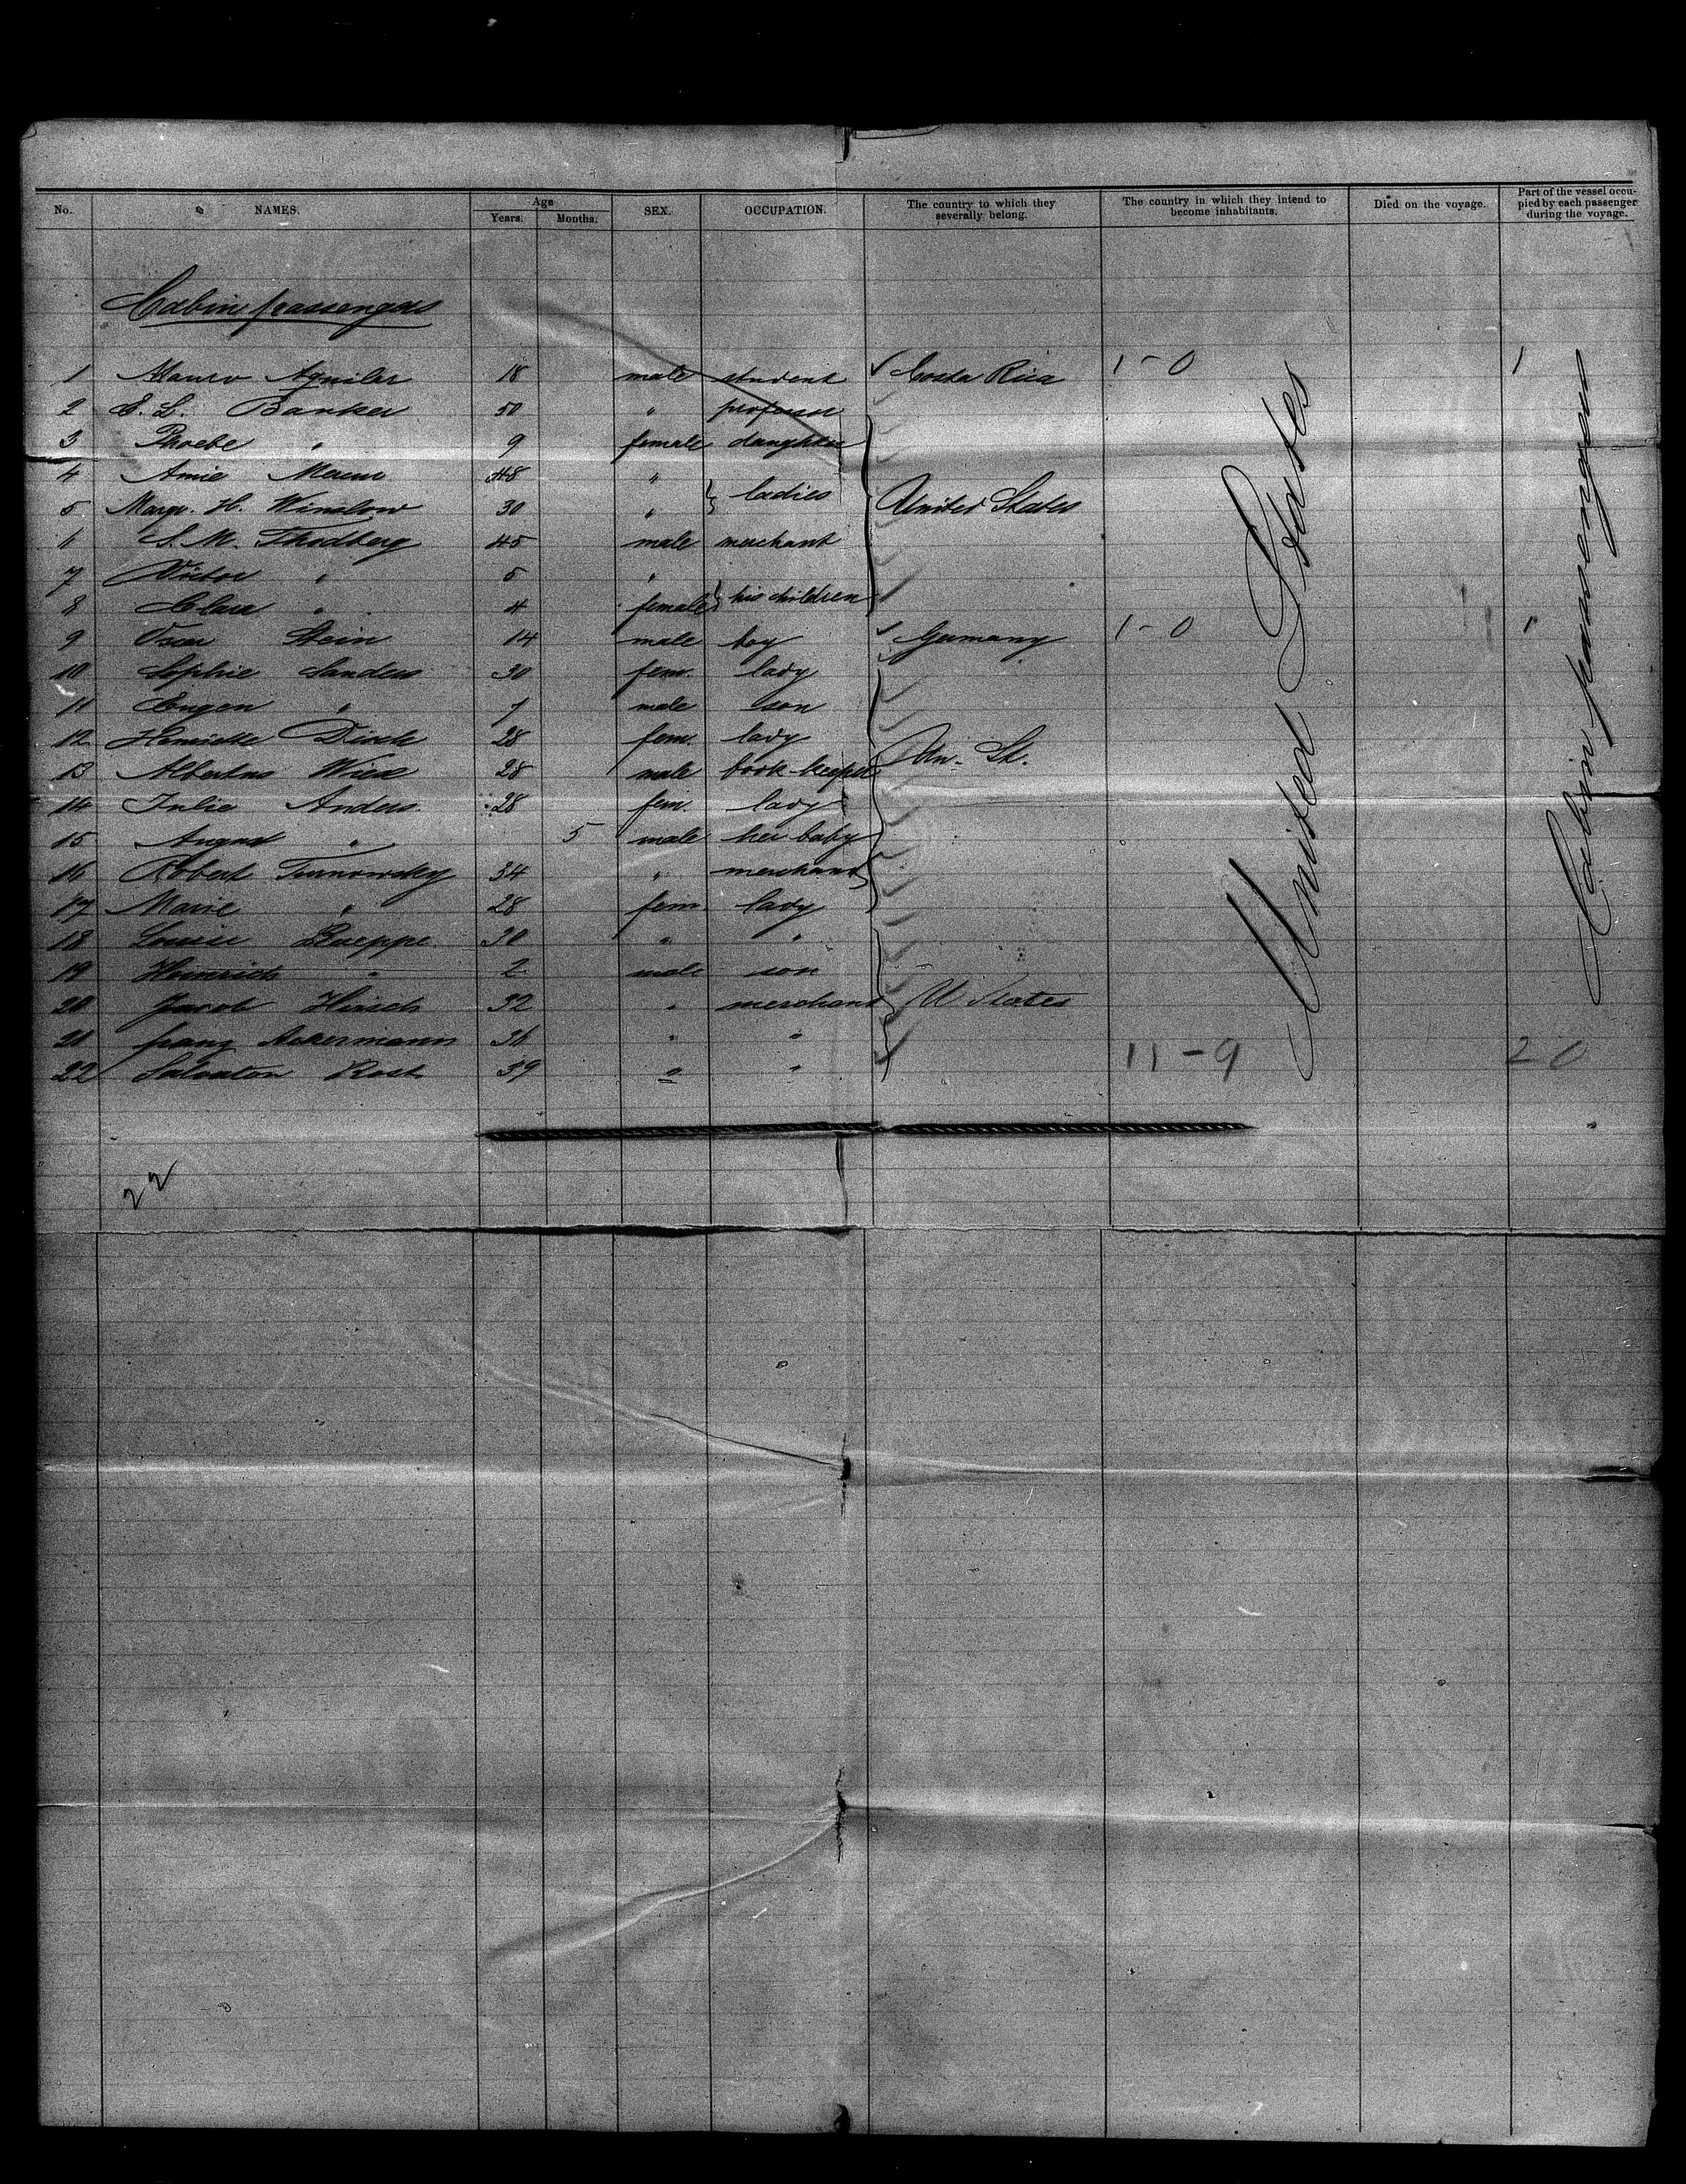 No. NAMES. Age Years. Months. SEX. OCCUPATION. The country to which they severally belong. The country in which they intend to become inhabitants. Died on the voyage. Part of the vessel occupied by each passenger during the voyage.
Cabin passengers
1 Mauro Aguilar 18 male student Costa Rica 1-0 1
2 S. L. Banker 50 " professor
3 Phoebe " 9 female daughter
4 Amie 48 "
5 Margr. H. Winslow 30 " ladies United States
6 S. M. Thodberg 45 male merchant
7 Victor " 5 "
8 Clara " 4 female his children
9 Oscar Stein 14 male boy Germany 1-0 1
10 Sophie Sanders 30 fem. lady
11 Eugen " 7 male son
12 Henriette 28 fem. lady Un. St.
13 Albertus 28 male book-keeper
14 Julie Anders. 28 fem. lady
15 August " 5 male her baby
16 Robert Turnowsky 34 " merchant
17 Marie " 28 fem. lady
18 Louise 30 " "
19 Heinrich " 2 male son
20 Jacob Hirsch 32 " merchant U States
21 franz Ackermann 36 " "
22 Salvator Rost 39 " " 11-9 20
United States
Cabin passengers
22